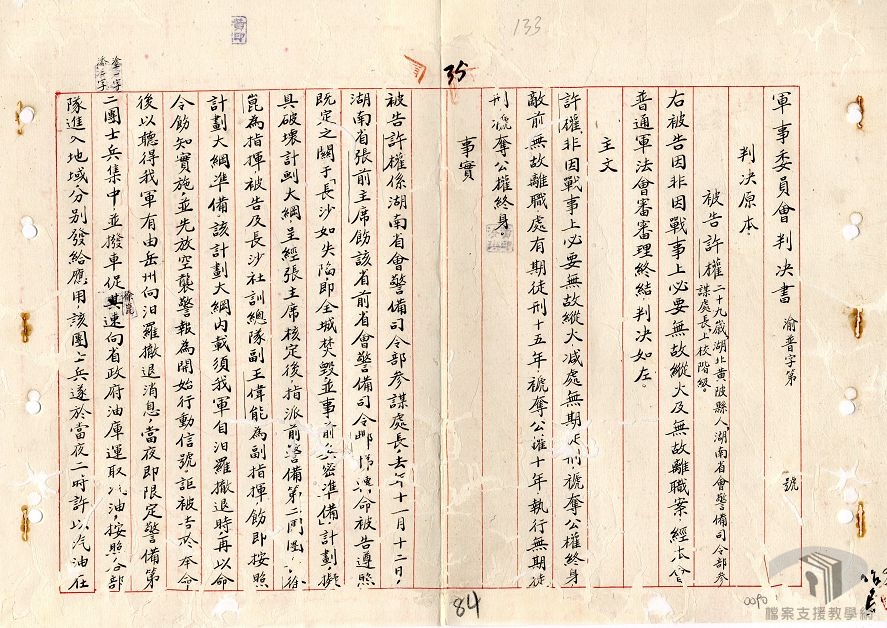 軍事委員會判決書 渝普字第 號
判決原本.
被告許權 二十九歲湖北黃陂縣人湖南省會警備司令部參
謀處長上校階級.
右被告因非因戰事上必要無故縱火及無故離職案,經本會
普通軍法會審審理終結判決如左.
主文
許權非因戰事上必要無故縱火減處無期徒刑褫奪公權終身
敵前無故離職處有期徒刑十五年,褫奪公權十年,執行無期徒
刑褫奪公權終身.
事實
被告許權係湖南省會警備司令部參謀處長,去年十一月十二日,
湖南省張前主席飭該省前省會警備司令酆悌,遂命被告遵照
既定之關于「長沙如失陷,即全城焚毀並事前秘密準備」計劃,擬
具破壞計劃大綱,呈經張主席核定後,指派前警備第二團團長徐
崑為指揮,被告及長沙社訓總隊副王偉能為副指揮飭即按照
計劃大綱準備,該計劃大綱內載須我軍自汨羅撤退時,再以命
令飭知實施,並先放空襲警報為開始行動信號詎被告於奉命
後以聽得我軍有由岳州向汨羅撤退消息,當夜即限定警備第
二團士兵集中,並撥車促徐崑速向省政府油庫運取汽油,按照各部
隊進入地域,分別發給應用,該團士兵遂於當夜二時許以汽油在
133
35
84
0090
檔案支援教學網